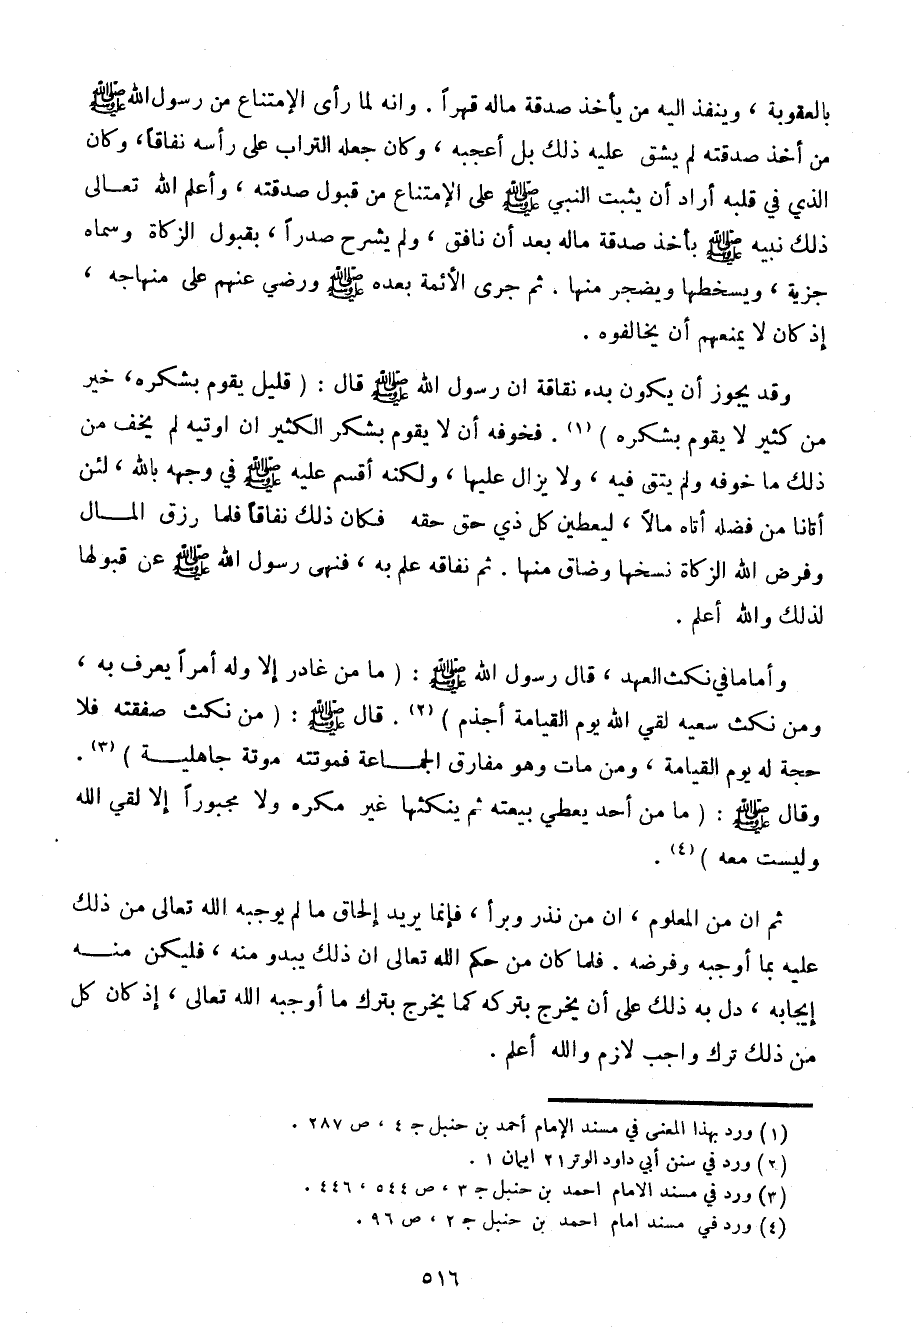 بالعقوبة ، وينفذ اليه من يأخذ صدقة ماله قهراً . وانه لما رأى الإمتناع من رسول الله ﷺ
من أخذ صدقته لم يشق عليه ذلك بل أعجبه ، وكان جعله التراب على رأسه نفاقاً، وكان
الذي في قلبه أراد أن يثبت النبي ﷺ على الإمتناع من قبول صدقته ، وأعلم الله تعالى
ذلك نبيه ﷺ بأخذ صدقة ماله بعد أن نافق ، ولم يشرح صدراً ، بقبول الزكاة وسماه
جزية ، ويسخطها ويضجر منها . ثم جرى الأئمة بعده ﷺ ورضي عنهم على منهاجه ،
إذ كان لا يمنعهم أن يخالفوه .
وقد يجوز أن يكون بدء نقاقة ان رسول الله ﷺ قال : ( قليل يقوم بشكره، خير
من كثير لا يقوم بشكره ) (١) . فخوفه أن لا يقوم بشكر الكثير ان اوتيه لم يخف من
ذلك ما خوفه ولم يتق فيه ، ولا يزال عليها ، ولكنه أقسم عليه ﷺ في وجهه بالله ، لئن
أتانا من فضله أتاه مالاً ، ليعطين كل ذي حق حقه فكان ذلك نفاقاً فلما رزق المال
وفرض الله الزكاة نسخها وضاق منها . ثم نفاقه علم به ، فنهى رسول الله ﷺ عن قبولها
لذلك والله أعلم .
وأمامافي نكث العهد ، قال رسول الله ﷺ : ( ما من غادر إلا وله أمراً يعرف به ،
ومن نكث سعيه لقي الله يوم القيامة أجذم ) (٢) . قال ﷺ : ( من نكث صفقته فلا
حجة له يوم القيامة ، ومن مات وهو مفارق الجماعة فموتته موتة جاهلية ) (٣) .
وقال ﷺ : ( ما من أحد يعطي بيعته ثم ينكثها غير مكره ولا مجبوراً إلا لقي الله
وليست معه ) (٤) .
ثم ان من المعلوم ، ان من نذر وبرأ ، فإنما يريد إلحاق ما لم يوجبه الله تعالى من ذلك
عليه بما أوجبه وفرضه . فلما كان من حكم الله تعالى ان ذلك يبدو منه ، فليكن منه
إيجابه ، دل به ذلك على أن يخرج بتركه كما يخرج بترك ما أوجبه الله تعالى ، إذ كان كل
من ذلك ترك واجب لازم والله أعلم .
(١) ورد بهذا المعنى في مسند الإمام أحمد بن حنبل جـ ٤ ، ص ٢٨٧ .
(٢) ورد في سنن أبي داود الوتر ٢١ ايمان ١ .
(٣) ورد في مسند الامام احمد بن حنبل جـ ٣ ، ص ٥٤٤ ، ٤٤٦ .
(٤) ورد في مسند امام احمد بن حنبل جـ ٢ ، ص ٩٦ .
٥١٦